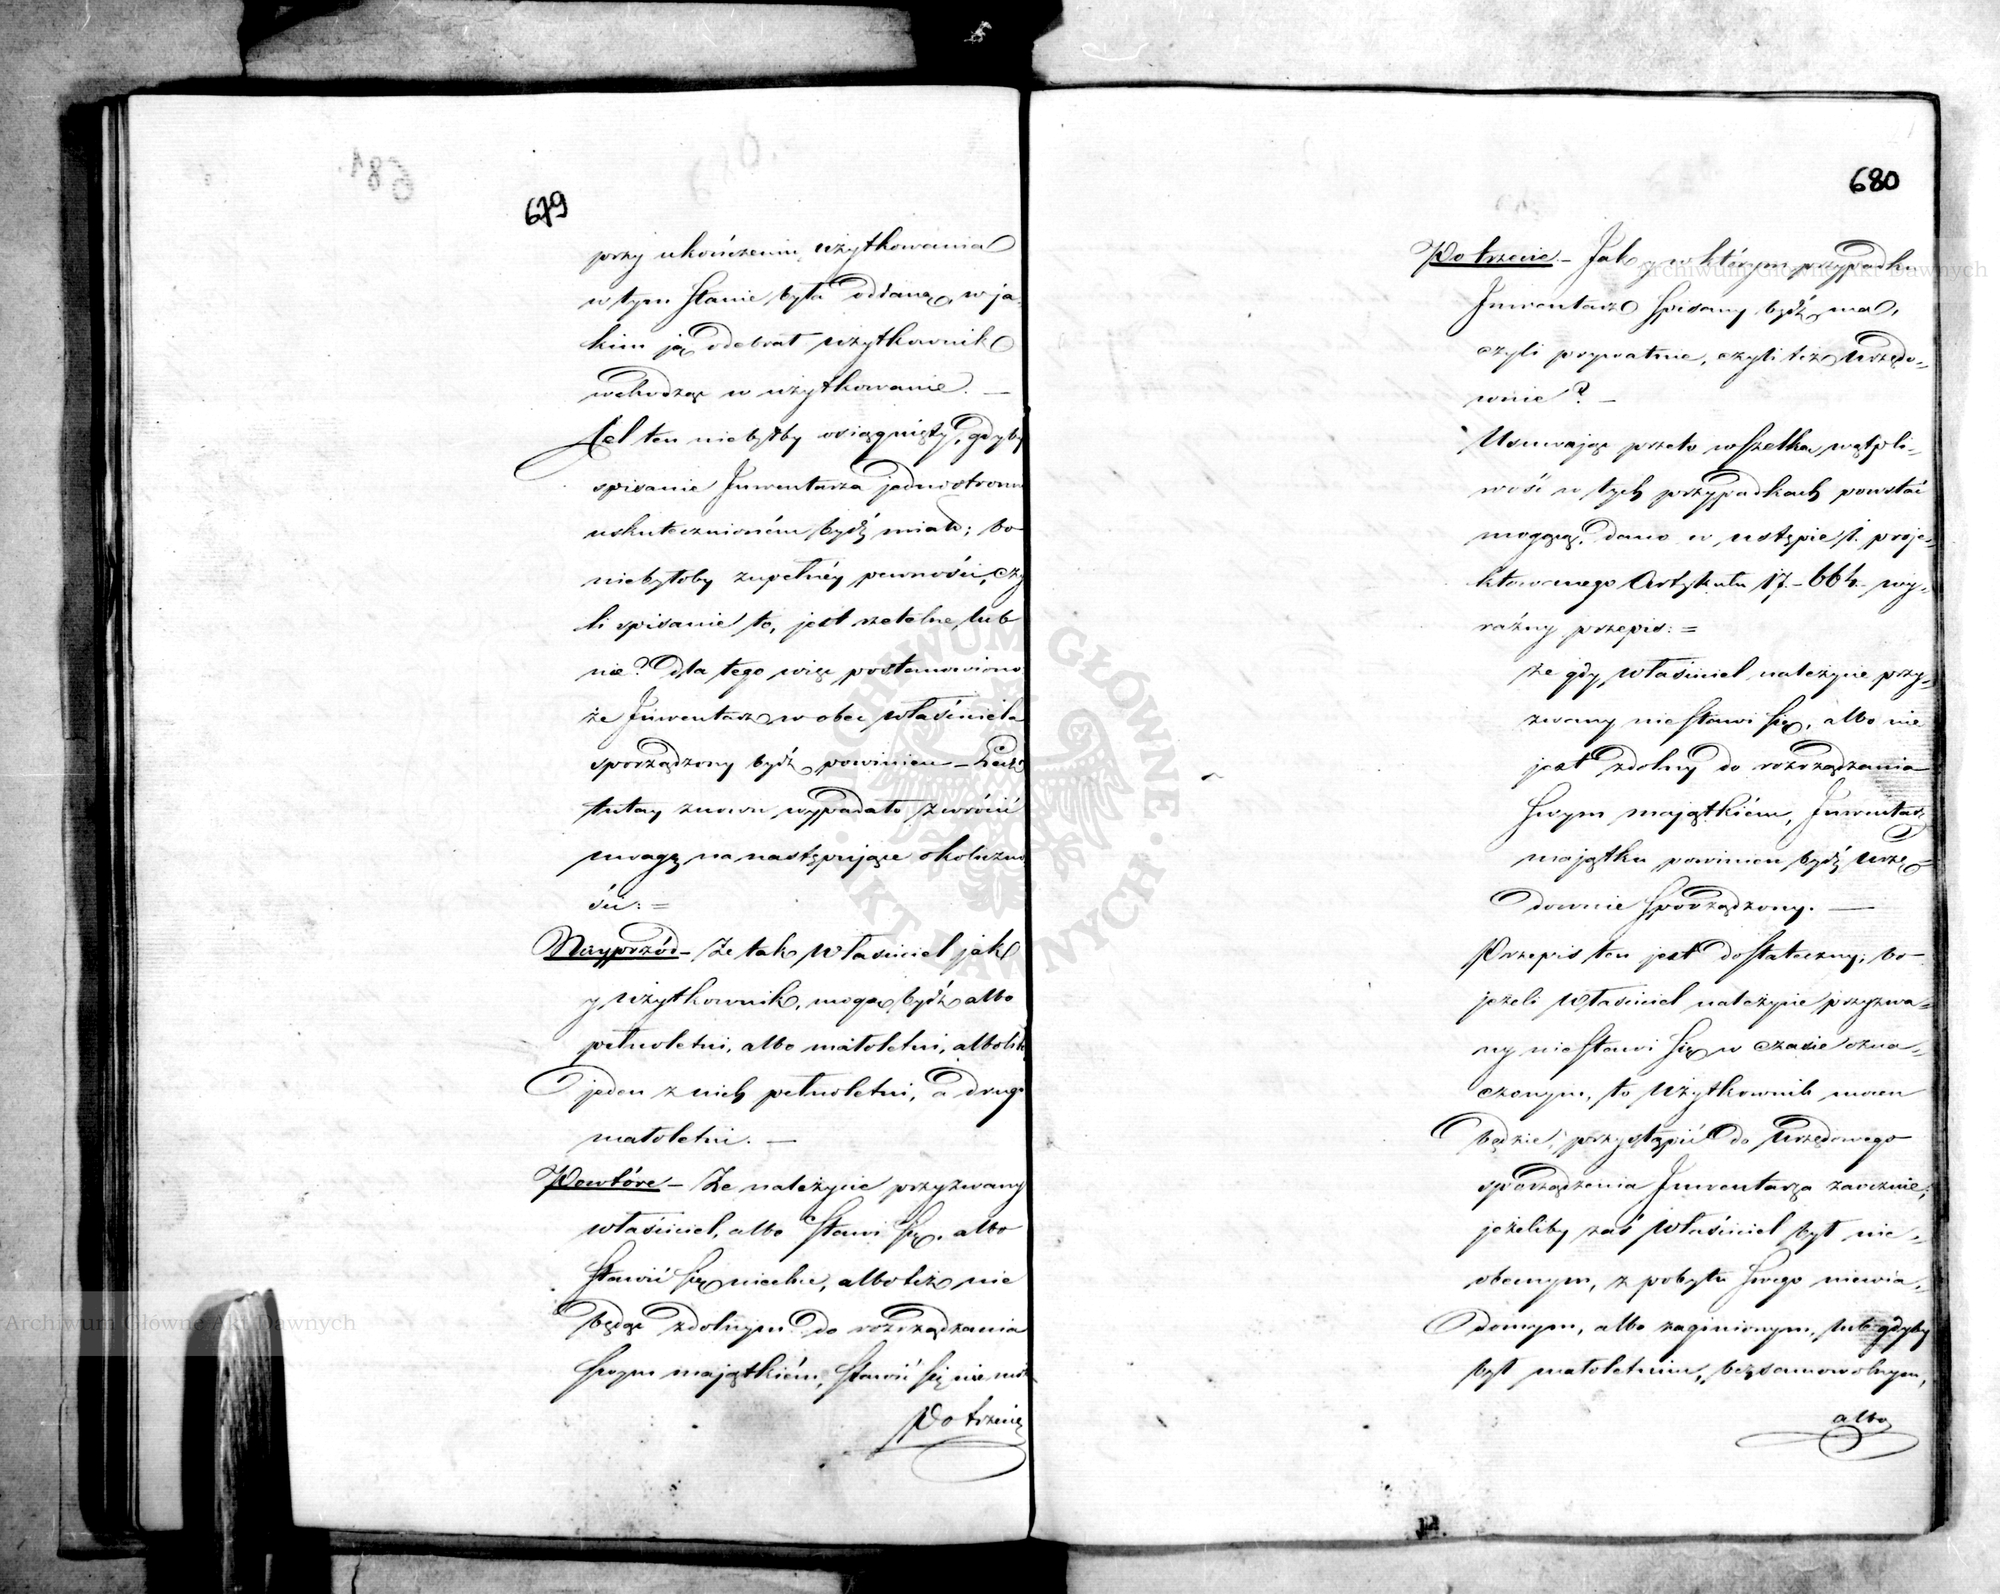 679
przy ukończeniu użytkowania
w tym stanie była oddaną, w ja-
kim ją odebrał użytkownik
wchodząc w użytkowanie. —
Cel ten niebyłby osiągnięty, gdyby
spisanie Inwentarza jednostronn
uskutecznioném bydź miało; bo
niebyłoby zupełnéy pewności, czy
li spisanie to, jest rzetelne, lub
nie? dla tego więc postanowiono
że Inwentarz w obec właściciela
sporządzony bydź powinien – Lecz
tutay znowu wypadało zwrócić
uwagę na następujące okoliczno
ści: =
Nayprzód – Że tak właściciel jak
y użytkownik, mogą bydź albo
pełnoletni, albo małoletni, albo też
jeden z nich pełnoletni, a drugi
małoletni. —
Powtóre – Że należycie przyzwany
właściciel, albo stawi się, albo
stawić się niechce, albo też nie
będąc zdolnym do rozrządzania
swym majątkiém, stawić się nie moż
Po trzecie
680
Po trzecie. – Jak y w którym przypadku
Inwentarz spisany bydź ma,
czyli prywatnie, czyli też urzędo-
wnie? –
Usuwając przeto wszelką wątpli-
wość w tych przypadkach powstać
mogącą, dano w ustępie 1. proje-
ktowanego Artykułu 17. – 664. wy-
raźny przepis: =
że gdy właściciel należycie przy-
zwany nie stawi się, albo nie
jest zdolny do rozrządzania
swym majątkiém, Inwentarz
majątku powinien bydź urzę-
downie sporządzony. —
Przepis ten jest dostateczny; bo
jeżeli właściciel należycie przyzwa-
ny nie stawi się w czasie ozna-
czonym, to użytkownik mocen
będzie, przystąpić do urzędowego
sporządzenia Inwentarza zaocznie;
jeżeliby zaś właściciel był nie-
obecnym, z pobytu swego niewia-
domym, albo zaginionym, lub gdyby
był małoletnim, bezsamowolnym,
albo